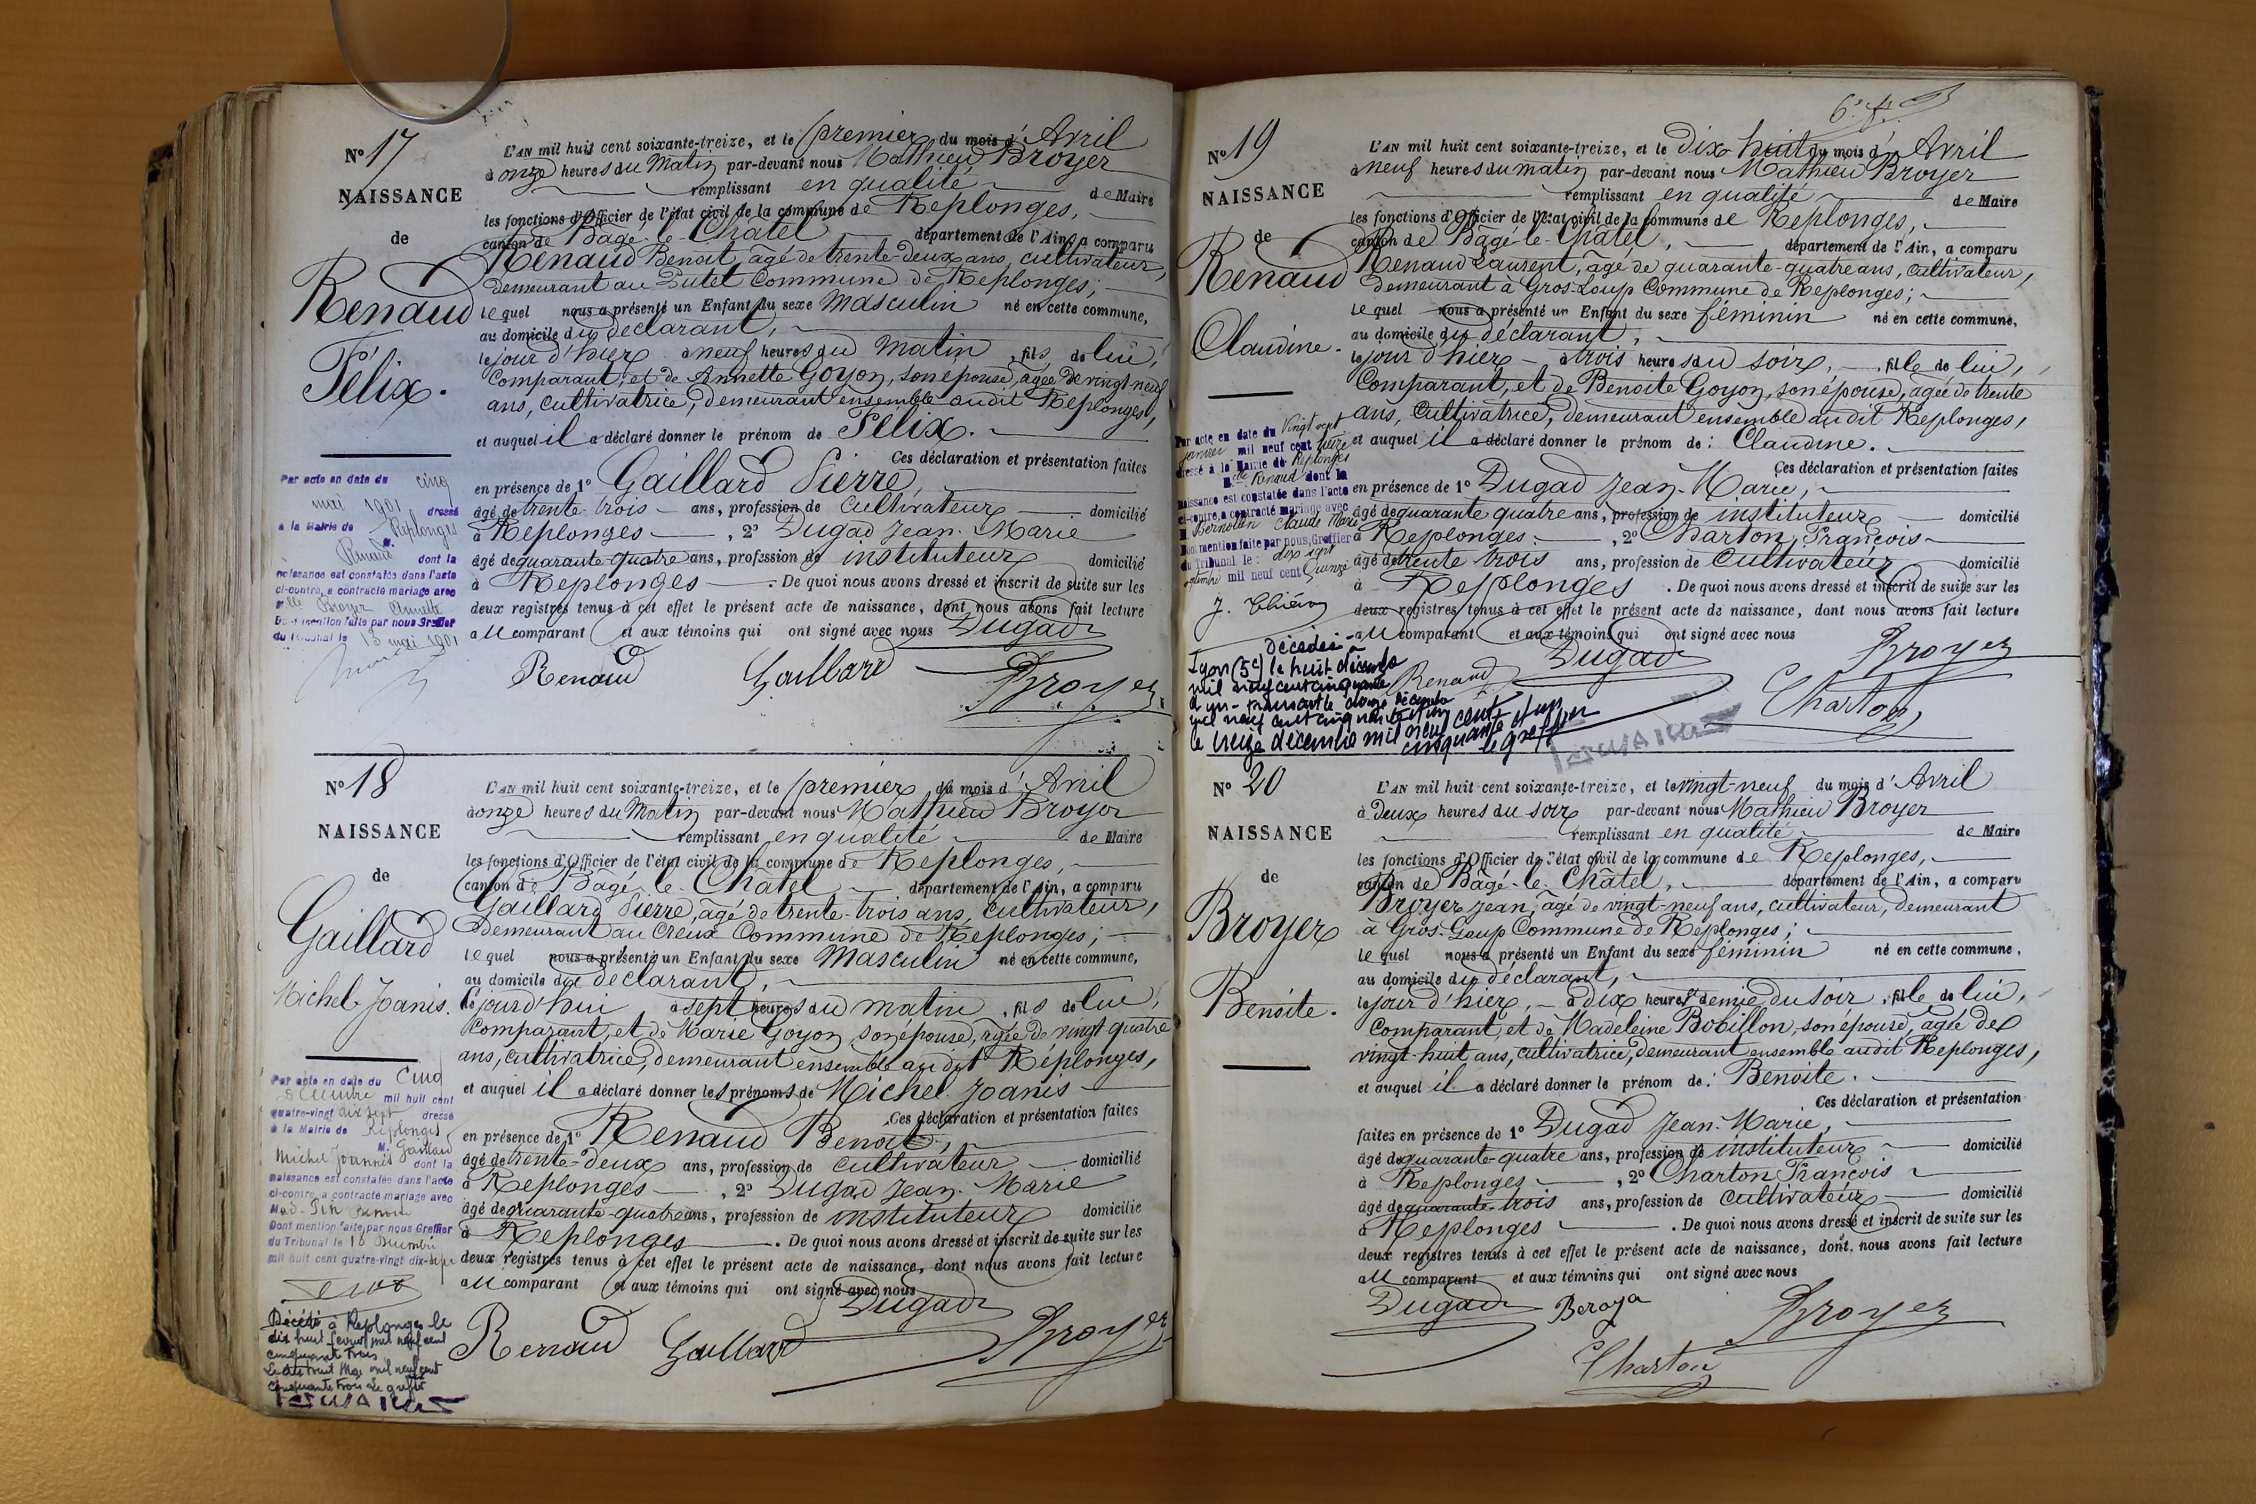 N° 17
NAISSANCE
de
Renaud
Félix.
L'AN mil huit cent soixante-treize, et le premier du mois d'Avril
à onze heures du Matin par-devant nous Mathieu Broyer
remplissant en qualité de Maire
les fonctions d'Officier de l'état civil de la commune de Replonges,
canton de Bâgé-le-Châtel département de l'Ain, a comparu
Renaud Benoit, âgé de trente-deux ans, cultivateur,
demeurant au Putet Commune de Replonges;
lequel nous a présenté un Enfant du sexe Masculin né en cette commune,
au domicile du déclarant,
le jour d'hier à neuf heures du matin, fils de lui,
Comparant, et de Annette Goyon, son épouse, âgée de vingt-neuf
ans, cultivatrice, demeurant ensemble audit Replonges,
et auquel il a déclaré donner le prénom de Félix.
Ces déclaration et présentation faites
en présence de 1° Gaillard Pierre,
âgé de trente-trois ans, profession de Cultivateur domicilié
à Replonges, 2° Dugad Jean-Marie
âgé de quarante-quatre ans, profession de instituteur domicilié
à Replonges. De quoi nous avons dressé et inscrit de suite sur les
deux registres tenus à cet effet le présent acte de naissance, dont nous avons fait lecture
au comparant et aux témoins qui ont signé avec nous
Dugad
Renaud Gaillard Broyer
Par acte en date du cinq
mai 1901 dressé
à la Mairie de Replonges
M. Renaud dont la
naissance est constatée dans l'acte
ci-contre, a contracté mariage avec
Mlle Broyer Annette
Dont mention faite par nous Greffier
du Tribunal le 13 mai 1901
N° 18
NAISSANCE
de
Gaillard
Michel-Joanis.
L'AN mil huit cent soixante-treize, et le premier du mois d'Avril
à onze heures du Matin par-devant nous Mathieu Broyer
remplissant en qualité de Maire
les fonctions d'Officier de l'état civil de la commune de Replonges,
canton de Bâgé-le-Châtel département de l'Ain, a comparu
Gaillard Pierre, âgé de trente-trois ans, cultivateur,
demeurant au Creux Commune de Replonges;
lequel nous a présenté un Enfant du sexe Masculin né en cette commune,
au domicile du déclarant,
le jourd'hui à sept heures du matin, fils de lui,
Comparant, et de Marie Goyon, son épouse, âgée de vingt-quatre
ans, cultivatrice, demeurant ensemble audit Replonges,
et auquel il a déclaré donner les prénoms de Michel Joanis
Ces déclaration et présentation faites
en présence de 1° Renaud Benoit,
âgé de trente-deux ans, profession de cultivateur domicilié
à Replonges, 2° Dugad Jean-Marie
âgé de quarante-quatre ans, profession de instituteur domicilié
à Replonges. De quoi nous avons dressé et inscrit de suite sur les
deux registres tenus à cet effet le présent acte de naissance, dont nous avons fait lecture
au comparant et aux témoins qui ont signé avec nous
Dugad
Renaud Gaillard Broyer
Par acte en date du Cinq
décembre mil huit cent
quatre-vingt dix sept dressé
à la Mairie de Replonges
M. Gaillard
Michel Joannès dont la
naissance est constatée dans l'acte
ci-contre, a contracté mariage avec
Dont mention faite par nous Greffier
du Tribunal le 10 Décembre
mil huit cent quatre-vingt dix-sept
Décédé à Replonges le
dix huit mil neuf cent
cinquante trois
Le dix huit Mai mil neuf cent
cinquante trois Le greffier
N° 19
NAISSANCE
de
Renaud
Claudine.
L'AN mil huit cent soixante-treize, et le Dix huit du mois d'Avril
à neuf heures du matin par-devant nous Mathieu Broyer
remplissant en qualité de Maire
les fonctions d'Officier de l'état civil de la commune de Replonges,
canton de Bâgé-le-Châtel, département de l'Ain, a comparu
Renaud Laurent, âgé de quarante-quatre ans, cultivateur,
demeurant à Gros-Loup Commune de Replonges;
lequel nous a présenté un Enfant du sexe féminin né en cette commune,
au domicile du déclarant,
le jour d'hier à trois heures du soir, fille de lui,
Comparant, et de Benoite Goyon, son épouse, âgée de trente
ans, Cultivatrice, demeurant ensemble audit Replonges,
et auquel il a déclaré donner le prénom de: Claudine.
Ces déclaration et présentation faites
en présence de 1° Dugad Jean-Marie,
âgé de quarante quatre ans, profession de instituteur domicilié
à Replonges, 2° Charton François
âgé de trente trois ans, profession de Cultivateur domicilié
à Replonges. De quoi nous avons dressé et inscrit de suite sur les
deux registres tenus à cet effet le présent acte de naissance, dont nous avons fait lecture
au comparant et aux témoins qui ont signé avec nous
Renaud Dugad Broyer
Charton
Par acte en date du Vingt sept
janvier mil neuf cent
dressé à la Mairie de Replonges
Mlle Renaud dont la
naissance est constatée dans l'acte
ci-contre, a contracté mariage avec
M. Bernollin Claude Marie
Dont mention faite par nous, Greffier
du Tribunal le: dix sept
septembre mil neuf cent Quinze
Décédée à
Lyon (5e) le huit décembre
mil neuf cent cinquante
et un
mil neuf cent cinquante et un
le treize décembre mil neuf cent
cinquante et un
le greffier
N° 20
NAISSANCE
de
Broyer
Benoite.
L'AN mil huit cent soixante-treize, et le vingt-neuf du mois d'Avril
à Deux heures du soir par-devant nous Mathieu Broyer
remplissant en qualité de Maire
les fonctions d'Officier de l'état civil de la commune de Replonges,
canton de Bâgé-le-Châtel, département de l'Ain, a comparu
Broyer Jean, âgé de vingt-neuf ans, cultivateur, demeurant
à Gros-Loup Commune de Replonges;
lequel nous a présenté un Enfant du sexe féminin né en cette commune,
au domicile du déclarant,
le jour d'hier, à dix heures et demie du soir, fille de lui,
Comparant, et de Madeleine Bobillon, son épouse, âgée de
vingt-huit ans, cultivatrice, demeurant ensemble audit Replonges,
et auquel il a déclaré donner le prénom de: Benoite.
Ces déclaration et présentation
faites en présence de 1° Dugad Jean-Marie,
âgé de quarante-quatre ans, profession de instituteur domicilié
à Replonges, 2° Charton François
âgé de quarante-trois ans, profession de Cultivateur domicilié
à Replonges. De quoi nous avons dressé et inscrit de suite sur les
deux registres tenus à cet effet le présent acte de naissance, dont nous avons fait lecture
au comparant et aux témoins qui ont signé avec nous
Dugad Beroya Broyer
Charton